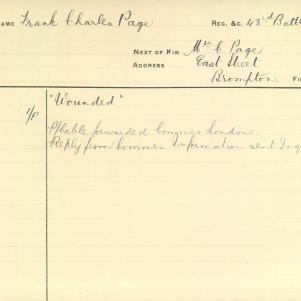 NAME Frank Charles Page REG. &C. 43rd Batt
NEXT OF KIN Mrs C. Page
ADDRESS East Street
Brompton
1/P "Wounded"
cable forwarded London.
Reply from Common Information sent Inq